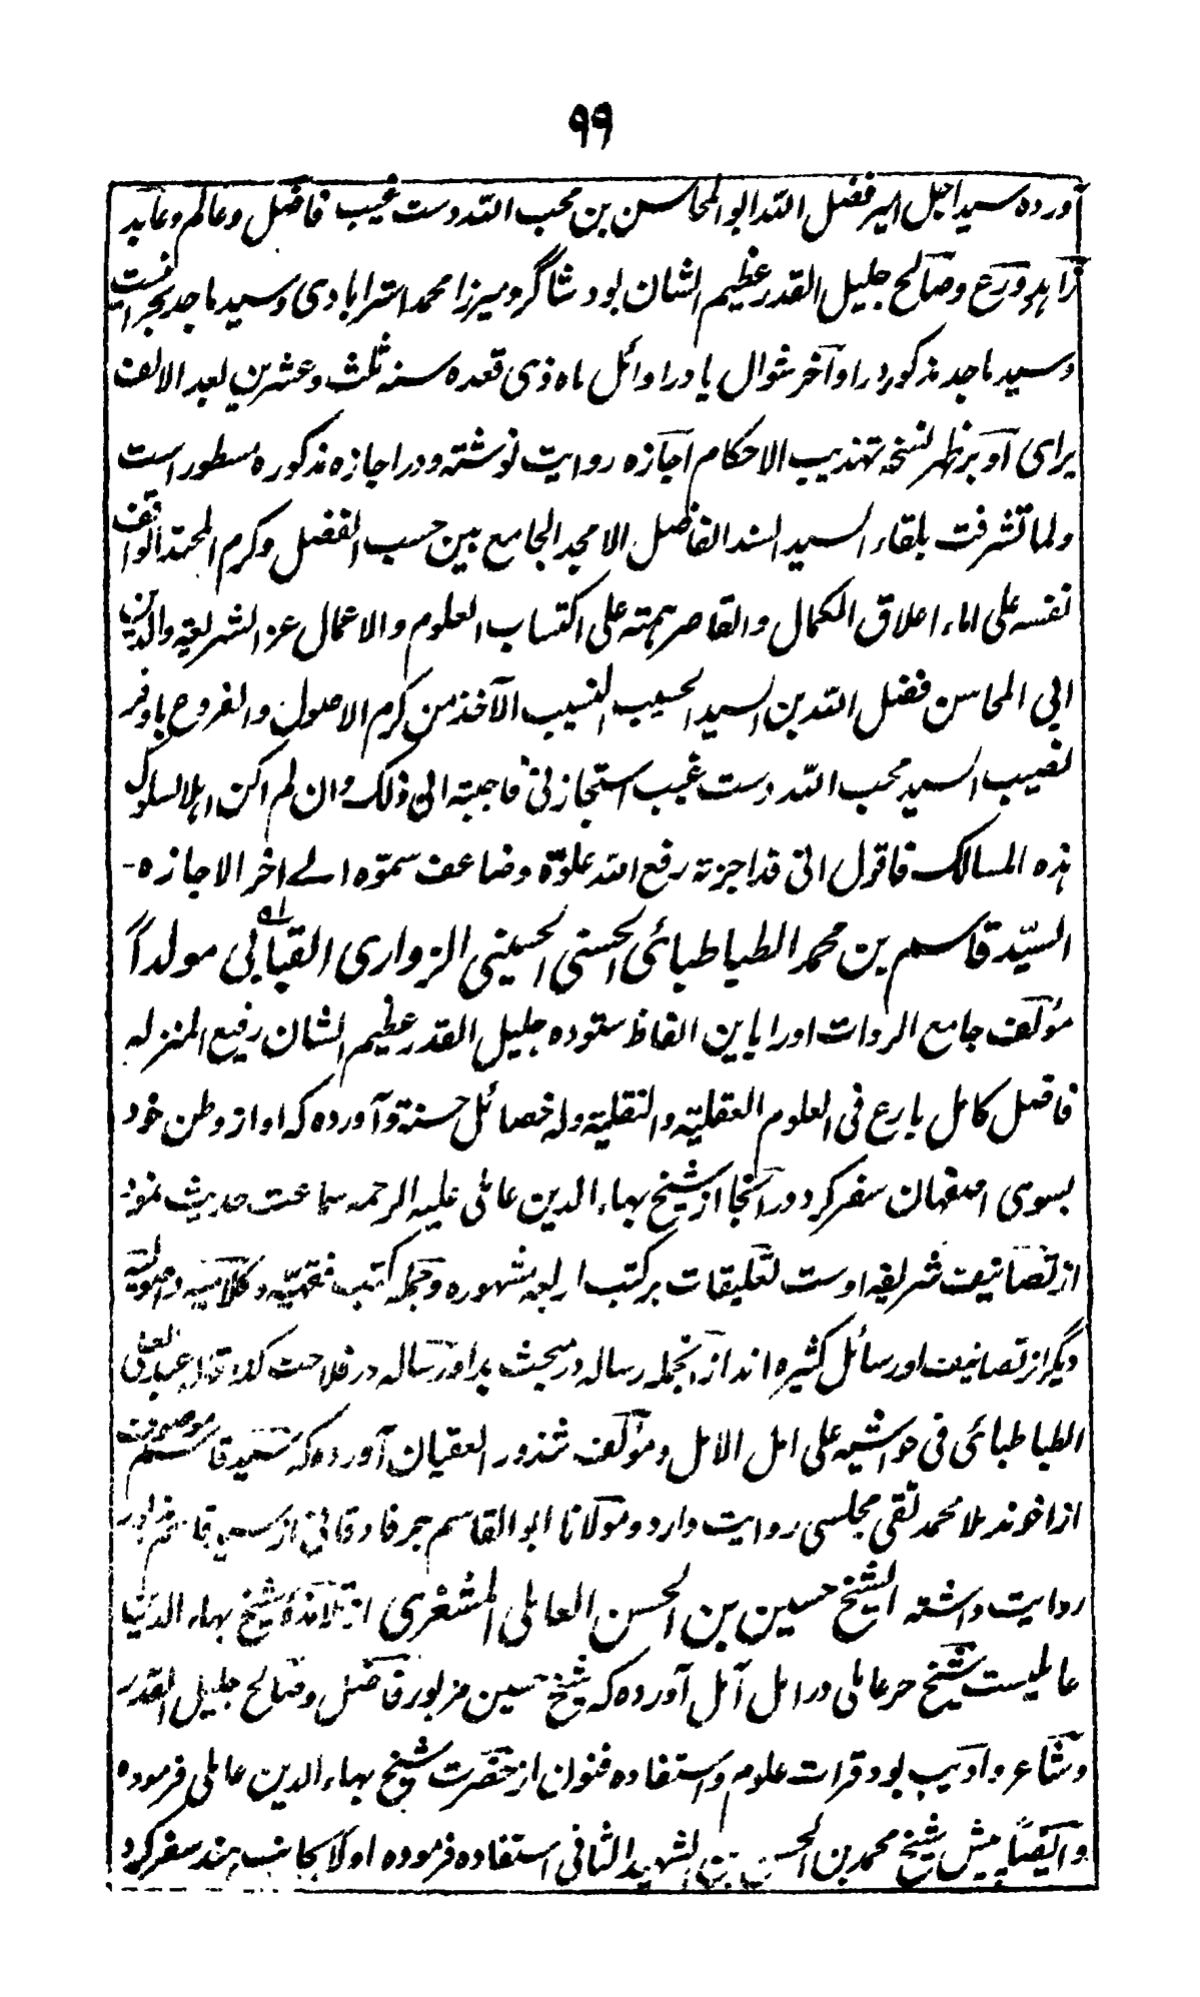 ۹۹
آورده سید اجل امیر فضل الله ابو المحاسن بن محب الله دست غیب فاضل و عالم و عابد
زاهد و ورع و صالح جلیل القدر عظیم الشان بود شاگرد میرزا محمد استرابادی و سید ماجد بحرانیست
و سید ماجد مذکور در اواخر شوال یا در اوائل ماه ذی قعده سنه ثلث و عشرین بعد الالف
برای او بر ظهر نسخه تهذیب الاحکام اجازه روایت نوشته و در اجازه مذکوره مسطور است
ولما تشرفت بلقاء السید السند الفاضل الامجد الجامع بین حسب الفضل وکرم المحتد الواقف
نفسه علی اعلاق الکمال والقاصر همته علی اکتساب العلوم والاعمال عز الشریعة والدین
ابی المحاسن فضل الله بن السید الحسیب النسیب الآخذ من کرم الاصول والفروع باوفر
نصیب السید محب الله دست غیب استجازنی فاجبته الی ذلک وان لم اکن اهلا لسلوک
هذه المسالک فاقول انی قد اجزته رفع الله علوّه وضاعف سموّه الے اخر الاجازه-
السیّد قاسم بن محمد الطباطبائی الحسنی الحسینی الزواری القپائی مولداً
مؤلف جامع الروات اورا باین الفاظ ستوده جلیل القدر عظیم الشان رفیع المنزله
فاضل کامل بارع فی العلوم العقلیّة والنقلیّة وله خصائل حسنة وآورده که او از وطن خود
بسوی اصفهان سفر کرد و در آنجا از شیخ بهاء الدین عاملی علیه الرحمه سماعت حدیث نمود
از تصانیف شریفه اوست تعلیقات بر کتب اربعه مشهوره و جمله کتب فقهیّه و کلامیه و اصولیه
دیگر از تصانیف او رسائل کثیره اند ازانجمله رساله در مبحث بدا و رساله در فلاحت کذا قال عبد العلی
الطباطبائی فی حواشیه علی امل الامل و مؤلف شذور العقیان آورده که سید قاسم موصوف
از اخوند ملا محمد تقی مجلسی روایت دارد و مولانا ابو القاسم جرفادقانی از سید قاسم مذکور
روایت داشته الشیخ حسین بن الحسن العاملی المشغری از تلامذهٔ شیخ بهاء الدین
عاملیست شیخ حر عاملی در امل آمل آورده که شیخ حسین مزبور فاضل و صالح جلیل القدر
و شاعر و ادیب بود قرات علوم و استفاده فنون از حضرت شیخ بهاء الدین عاملی فرموده
و ایضاً پیش شیخ محمد بن الحسن بن الشهید الثانی استفاده فرموده اولاً بجانب هند سفر کرد